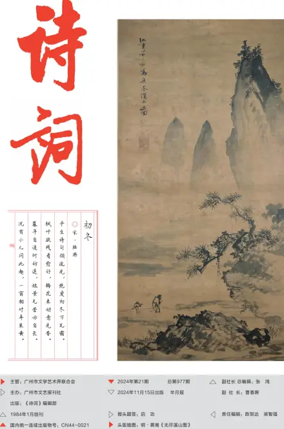 诗词
初冬
宋·陆游
平生诗句领流光，绝爱初冬万瓦霜。
枫叶欲残看愈好，梅花未动意先香。
暮年自适何妨退，短景无营亦自长。
况有小儿同此趣，一窗相对弄朱黄。
主管：广州市文学艺术界联合会
主办：广州市文艺报刊社
出版：《诗词》编辑部
1984年1月创刊
国内统一连续出版物号：CN44-0021
2024年第21期
总第977期
2024年11月15日出版
半月报
报头题签：启 功